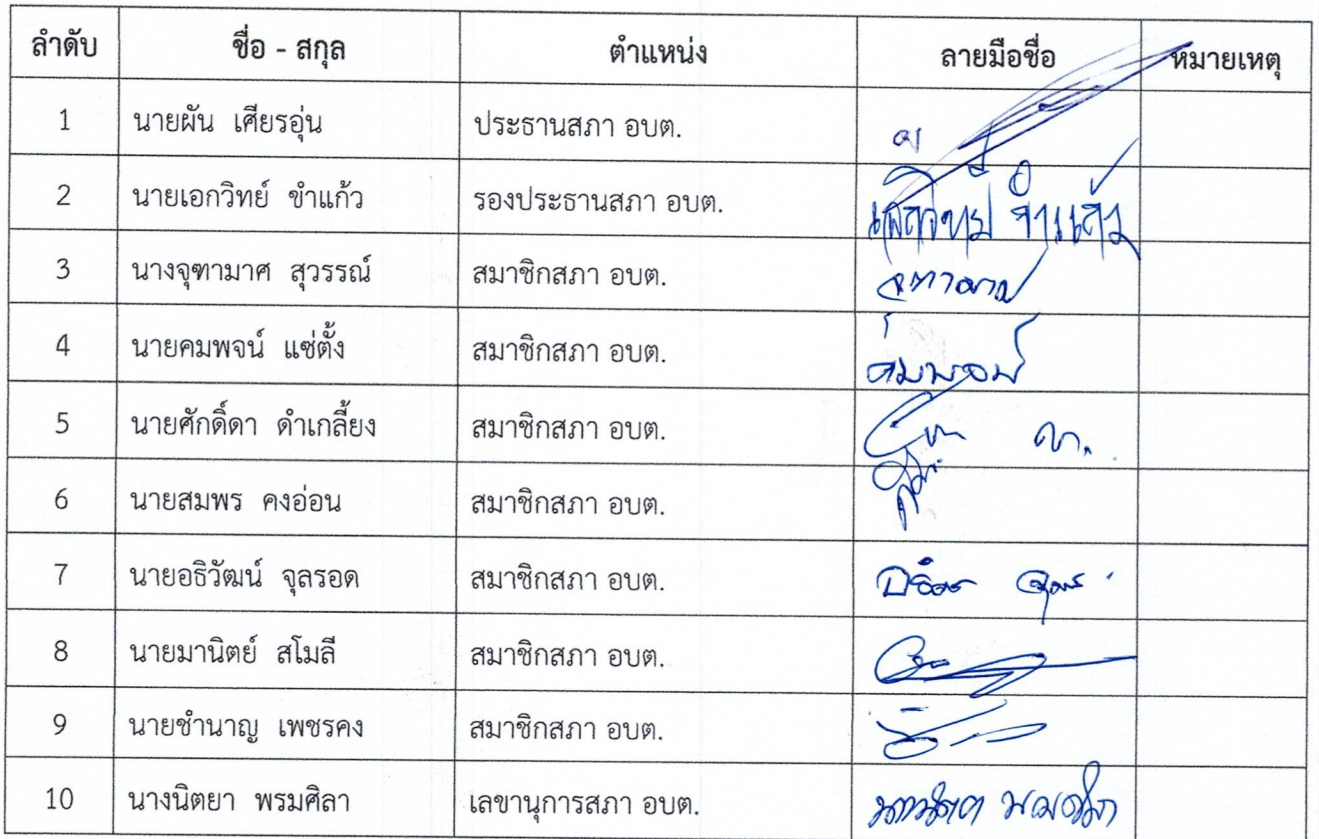 ลำดับ ชื่อ - สกุล ตำแหน่ง ลายมือชื่อ หมายเหตุ
1 นายผัน เศียรอุ่น ประธานสภา อบต.
2 นายเอกวิทย์ ขำแก้ว รองประธานสภา อบต.
3 นางจุฑามาศ สุวรรณ์ สมาชิกสภา อบต.
4 นายคมพจน์ แซ่ตั้ง สมาชิกสภา อบต.
5 นายศักดิ์ดา ดำเกลี้ยง สมาชิกสภา อบต.
6 นายสมพร คงอ่อน สมาชิกสภา อบต.
7 นายอธิวัฒน์ จุลรอด สมาชิกสภา อบต.
8 นายมานิตย์ สโมลี สมาชิกสภา อบต.
9 นายชำนาญ เพชรคง สมาชิกสภา อบต.
10 นางนิตยา พรมศิลา เลขานุการสภา อบต.